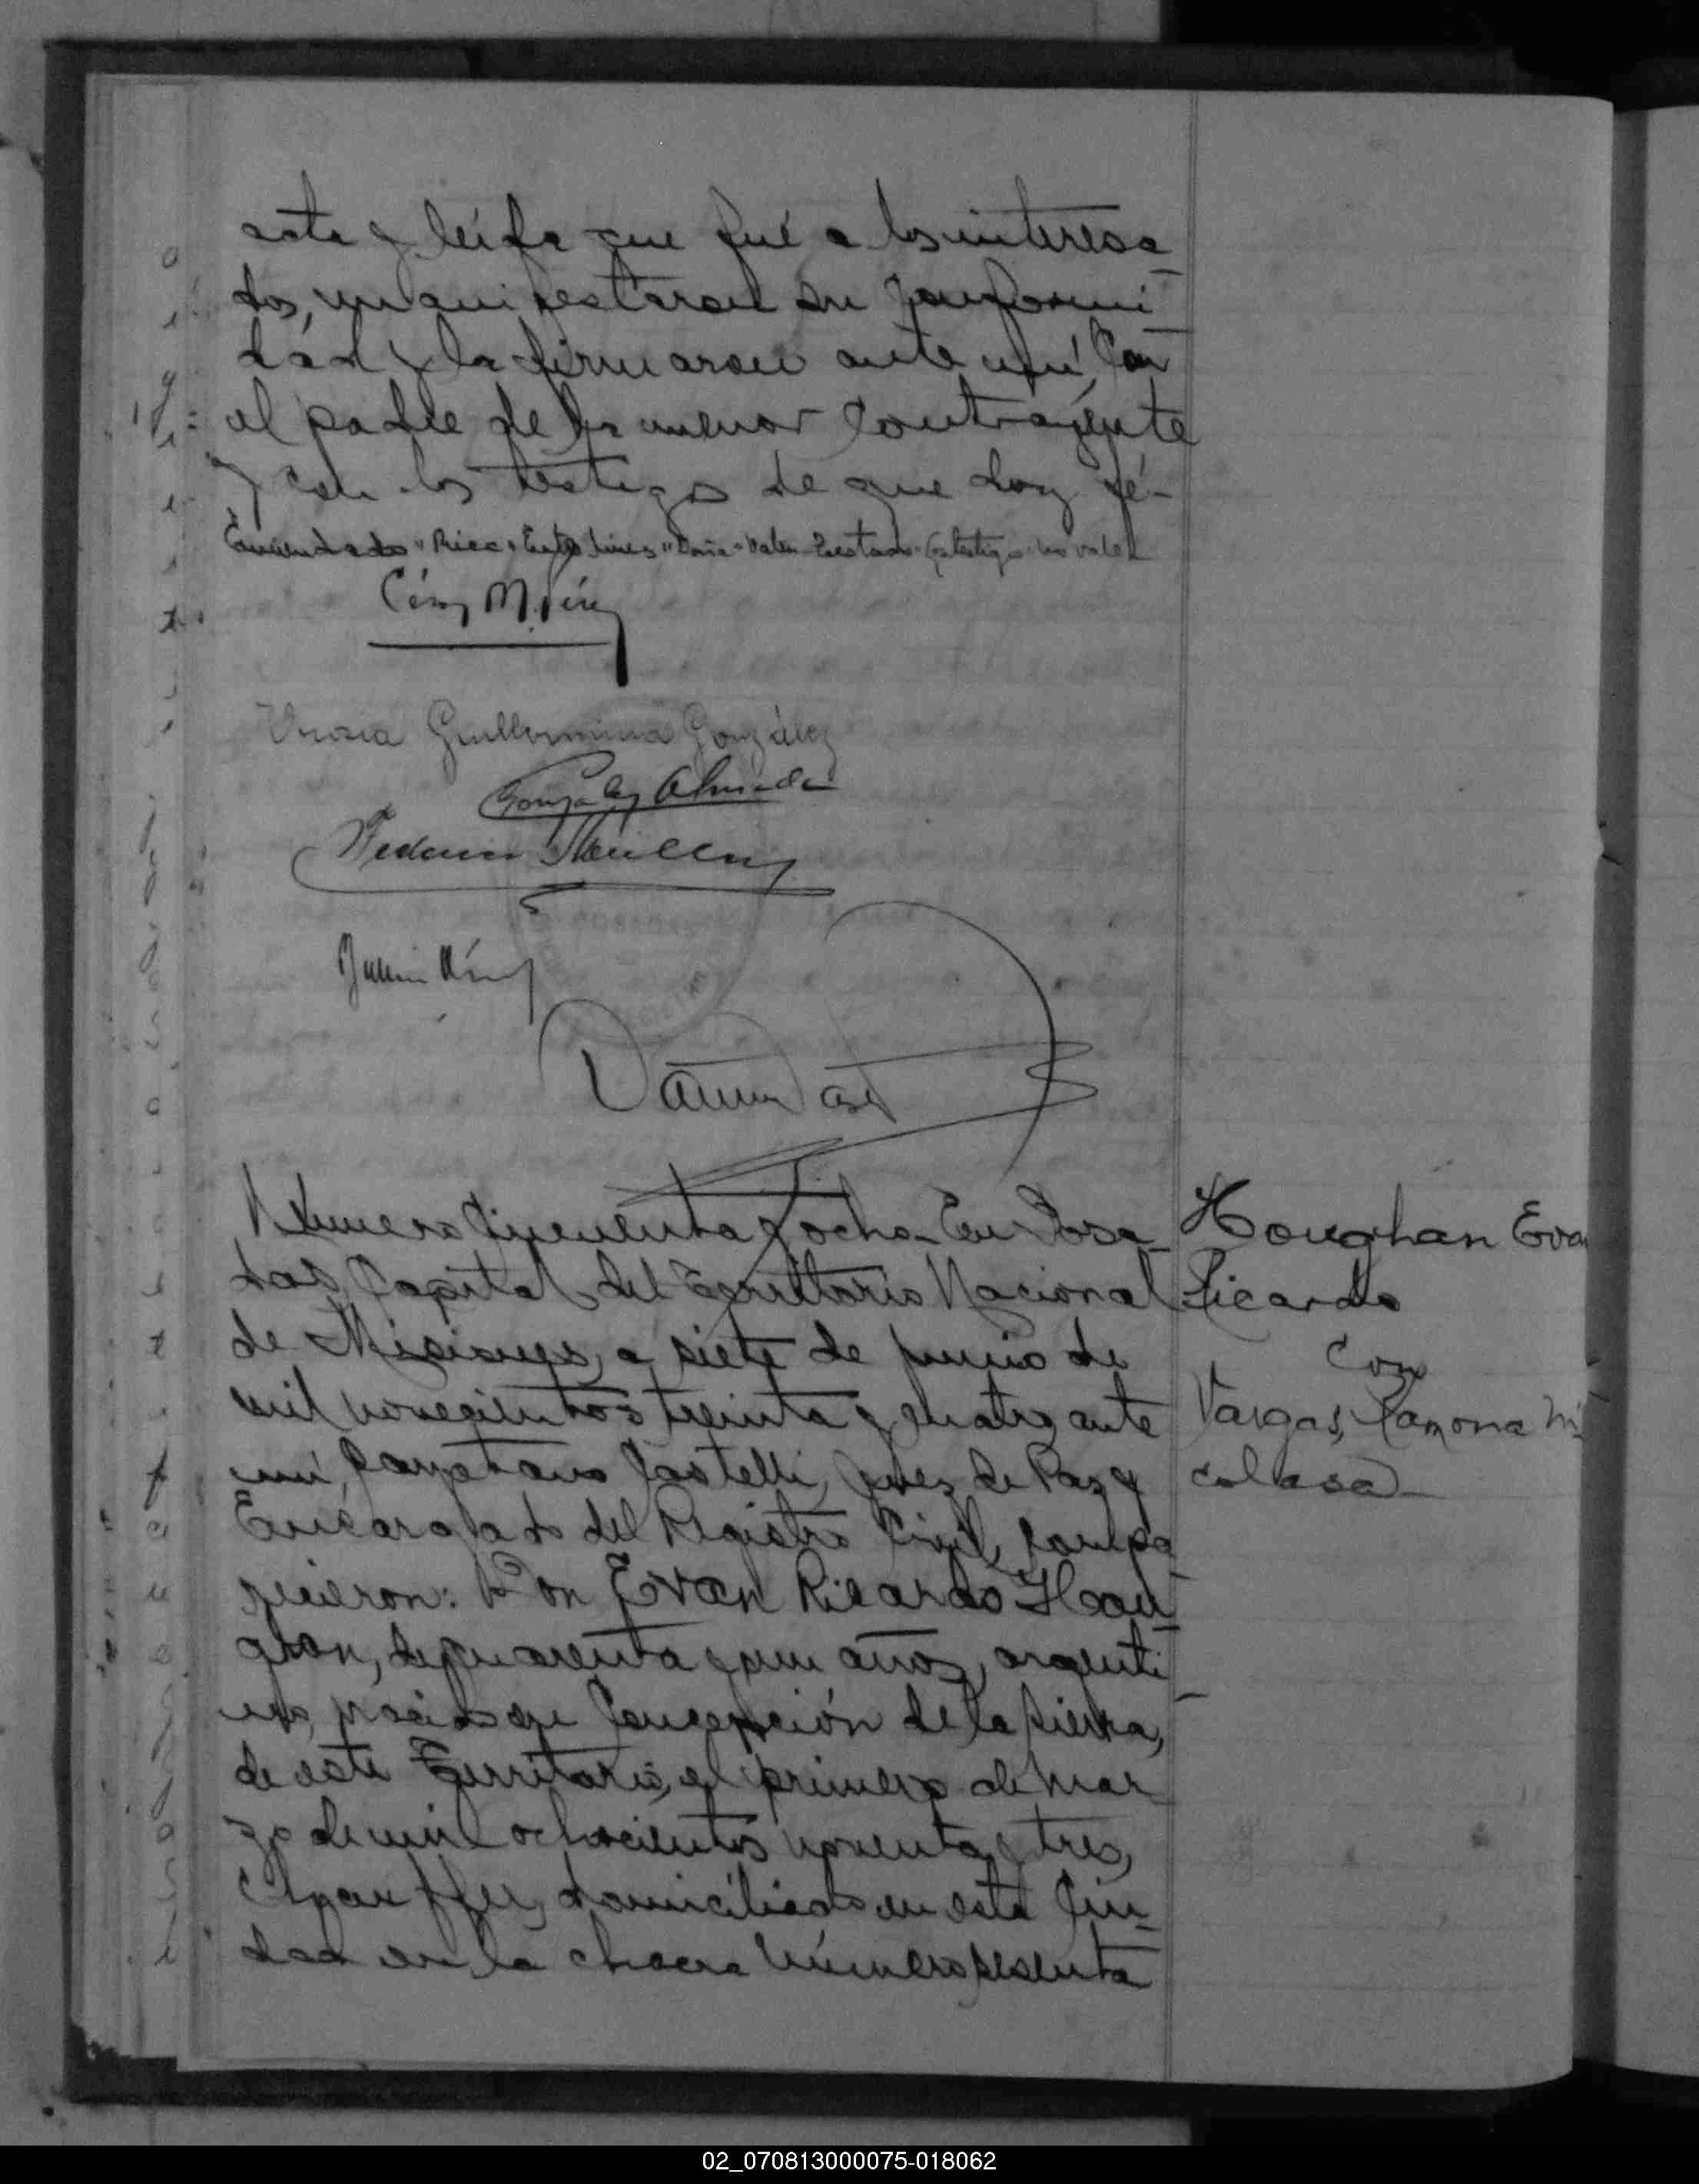 acta y leída que fué a los interesa-
dos, manifestaron su conformi-
dad y la firmaron ante mí, con
el padre de la menor contrayente
y con los testigos de que doy fé-
Enmendado "Rica" Entre lineas "Doña" Valen-Testado: no vale
González Almada
Federico
Número cincuenta y ocho- En Posa-
das, Capital del Territorio Nacional
de Misiones, a siete de junio de
mil novecientos treinta y cuatro, ante
mí, Cayetano Castelli, Juez de Paz y
Encargado del Registro Civil, compa-
recieron: Don Evan Ricardo Hou-
ghan, de cuarenta y un años, argenti-
no, nacido en Concepción de la Sierra,
de este Territorio, el primero de mar-
zo de mil ochocientos noventa y tres,
Chauffeur, domiciliado en esta Ciu-
dad en la chacra número sesenta
Houghan Evan
Ricardo
con
Vargas, Ramona Ni
colasa-
Guillermina González
02_070813000075-018062